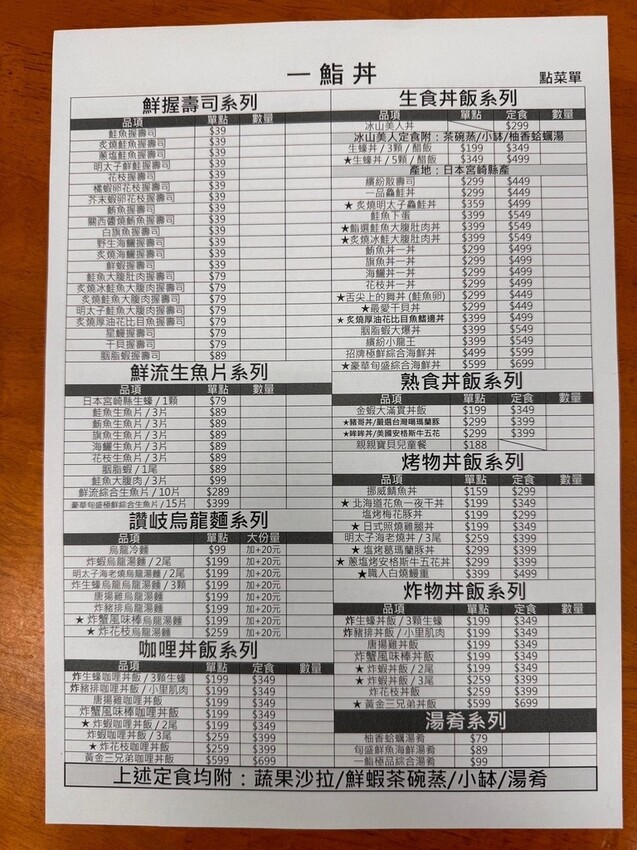 一鮨丼
點菜單
鮮握壽司系列
品項 單點 數量
鮭魚握壽司 $39
炙燒鮭魚握壽司 $39
蔥鹽鮭魚握壽司 $39
明太子鮮鮭握壽司 $39
花枝握壽司 $39
橘蝦卵花枝握壽司 $39
芥末蝦卵花枝握壽司 $39
鮪魚握壽司 $39
關西醬燒鮪魚握壽司 $39
白旗魚握壽司 $39
野生海鱺握壽司 $39
炙燒海鱺握壽司 $39
鮮蝦握壽司 $39
鮭魚大腹肚肉握壽司 $79
炙燒冰鮭魚大腹肉握壽司 $79
炙燒鮭魚大腹肉握壽司 $79
明太子鮭魚大腹肉握壽司 $79
炙燒厚油花比目魚握壽司 $79
星鰻握壽司 $79
干貝握壽司 $79
胭脂蝦握壽司 $89
鮮流生魚片系列
品項 單點 數量
日本宮崎縣生蠔 / 1顆 $79
鮭魚生魚片 / 3片 $89
鮪魚生魚片 / 3片 $89
旗魚生魚片 / 3片 $89
海鱺生魚片 / 3片 $89
花枝生魚片 / 3片 $89
胭脂蝦 / 1尾 $89
鮭魚大腹肉 / 3片 $99
鮮流綜合生魚片 / 10片 $289
豪華旬盛極鮮綜合生魚片 / 15片 $399
讚岐烏龍麵系列
品項 單點 大份量
烏龍冷麵 $99 加+20元
炸蝦烏龍湯麵 / 2尾 $199 加+20元
明太子海老燒烏龍湯麵 / 2尾 $199 加+20元
炸生蠔烏龍烏龍湯麵 / 3顆 $199 加+20元
唐揚雞烏龍湯麵 $199 加+20元
炸豬排烏龍湯麵 $199 加+20元
★ 炸蟹風味棒烏龍湯麵 $199 加+20元
★ 炸花枝烏龍湯麵 $259 加+20元
咖哩丼飯系列
品項 單點 定食 數量
炸生蠔咖哩丼飯 / 3顆生蠔 $199 $349
炸豬排咖哩丼飯 / 小里肌肉 $199 $349
唐揚雞咖哩丼飯 $199 $349
炸蟹風味棒咖哩丼飯 $199 $349
★ 炸蝦咖哩丼飯 / 2尾 $199 $349
炸蝦咖哩丼飯 / 3尾 $259 $399
★ 炸花枝咖哩丼飯 $259 $399
黃金三兄弟咖哩丼飯 $599 $699
生食丼飯系列
品項 單點 定食 數量
冰山美人丼 $299
冰山美人定食附：茶碗蒸/小缽/柚香蛤蠣湯
生蠔丼 / 3顆 / 醋飯 $199 $349
★生蠔丼 / 5顆 / 醋飯 $349 $499
產地：日本宮崎縣產
繽紛散壽司 $299 $449
一品鱻鮭丼 $299 $449
★ 炙燒明太子鱻鮭丼 $359 $499
鮭魚下蛋 $399 $549
★鮨選鮭魚大腹肚肉丼 $399 $549
★炙燒冰鮭大腹肚肉丼 $399 $549
鮪魚丼一丼 $299 $449
旗魚丼一丼 $299 $499
海鱺丼一丼 $299 $499
花枝丼一丼 $299 $499
★舌尖上的舞丼 (鮭魚卵) $299 $449
★最愛干貝丼 $299 $449
★炙燒厚油花比目魚鰭邊丼 $399 $499
胭脂蝦大爆丼 $399 $549
繽紛小龍王 $399 $549
招牌極鮮綜合海鮮丼 $499 $549
★豪華旬盛綜合海鮮丼 $599 $699
熟食丼飯系列
品項 單點 定食 數量
金蝦大滿貫丼飯 $199 $349
★豬哥丼/嚴選台灣噶瑪蘭豚 $299 $399
★哞哞丼/美國安格斯牛五花 $299 $399
親親寶貝兒童餐 $188
烤物丼飯系列
品項 單點 定食 數量
挪威鯖魚丼 $159 $299
★ 北海道花魚一夜干丼 $199 $349
塩烤梅花豚丼 $199 $299
★ 日式照燒雞腿丼 $199 $349
明太子海老燒丼 / 3尾 $259 $399
★ 塩烤葛瑪蘭豚丼 $299 $399
★ 蔥塩烤安格斯牛五花丼 $299 $399
★職人白燒鰻重 $399 $499
炸物丼飯系列
品項 單點 定食 數量
炸生蠔丼飯 / 3顆生蠔 $199 $349
炸豬排丼飯 / 小里肌肉 $199 $349
唐揚雞丼飯 $199 $349
炸蟹風味棒丼飯 $199 $349
★ 炸蝦丼飯 / 2尾 $199 $349
★ 炸蝦丼飯 / 3尾 $259 $399
炸花枝丼飯 $259 $399
★ 黃金三兄弟丼飯 $599 $699
湯肴系列
柚香蛤蠣湯肴 $79
旬盛鮮魚海鮮湯肴 $89
一鮨極品綜合湯肴 $99
上述定食均附：蔬果沙拉/鮮蝦茶碗蒸/小缽/湯肴